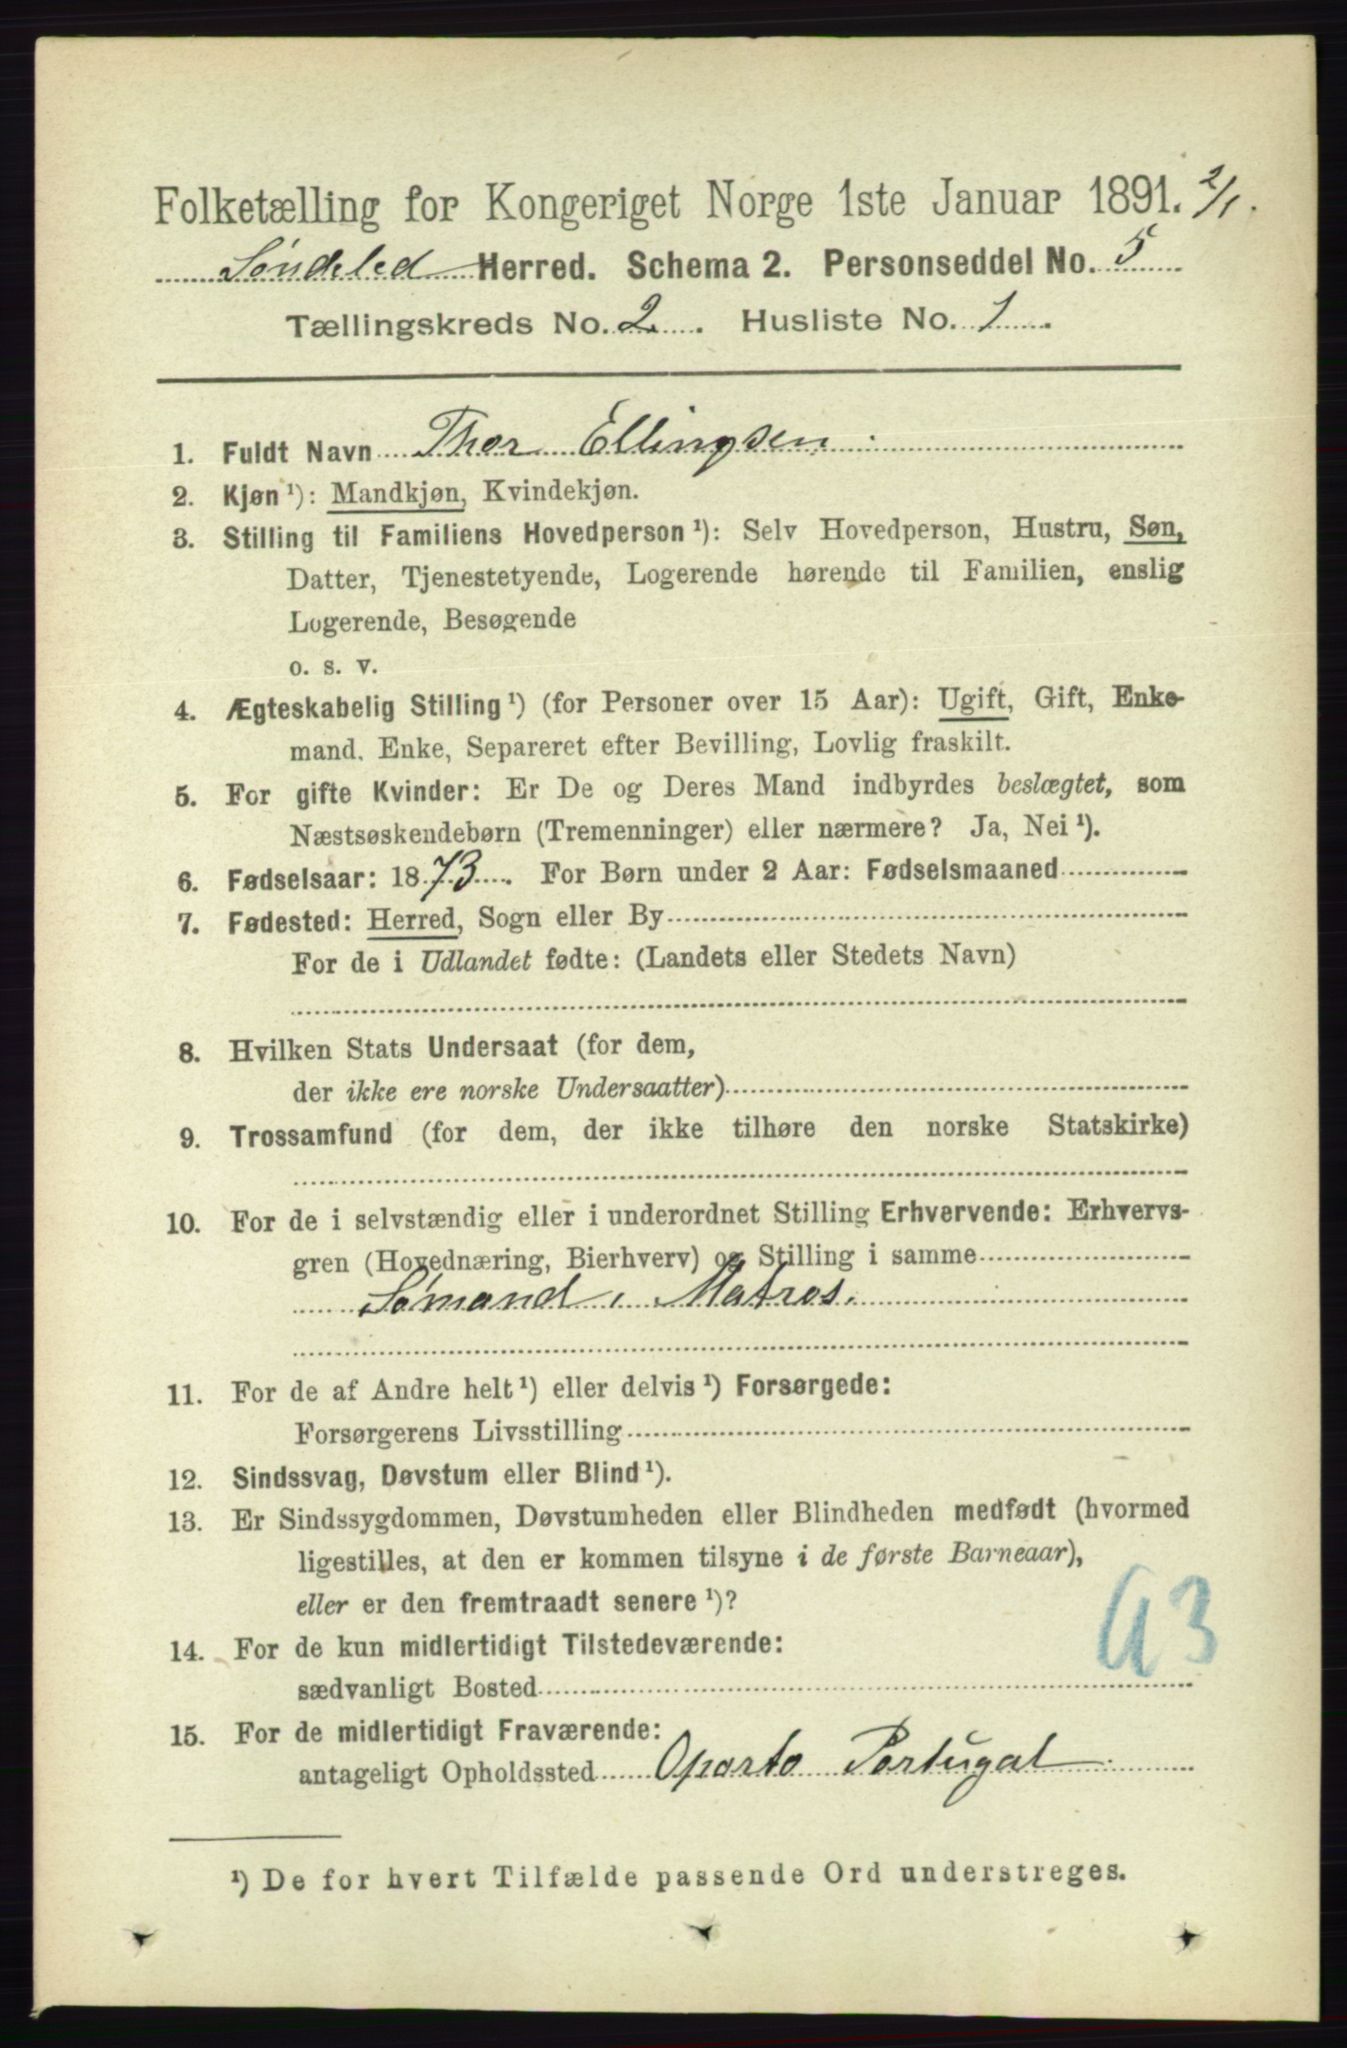 Folketælling for Kongeriget Norge 1ste Januar 1891. 2/1.
Søndeled Herred. Schema 2. Personseddel No. 5
Tællingskreds No. 2. Husliste No. 1.
1. Fuldt Navn Thor Ellingsen.
2. Kjøn¹): Mandkjøn, Kvindekjøn.
3. Stilling til Familiens Hovedperson¹): Selv Hovedperson, Hustru, Søn,
Datter, Tjenestetyende, Logerende hørende til Familien, enslig
Logerende, Besøgende
o. s. v.
4. Ægteskabelig Stilling¹) (for Personer over 15 Aar): Ugift, Gift, Enke-
mand, Enke, Separeret efter Bevilling, Lovlig fraskilt.
5. For gifte Kvinder: Er De og Deres Mand indbyrdes beslægtet, som
Næstsøskendebørn (Tremenninger) eller nærmere? Ja, Nei¹).
6. Fødselsaar: 1873. For Børn under 2 Aar: Fødselsmaaned
7. Fødested: Herred, Sogn eller By
For de i Udlandet fødte: (Landets eller Stedets Navn)
8. Hvilken Stats Undersaat (for dem,
der ikke ere norske Undersaatter)
9. Trossamfund (for dem, der ikke tilhøre den norske Statskirke)
10. For de i selvstændig eller i underordnet Stilling Erhvervende: Erhvervs-
gren (Hovednæring, Bierhverv) og Stilling i samme
Sømand, Matros.
11. For de af Andre helt¹) eller delvis¹) Forsørgede:
Forsørgerens Livsstilling
12. Sindssvag, Døvstum eller Blind¹).
13. Er Sindssygdommen, Døvstumheden eller Blindheden medfødt (hvormed
ligestilles, at den er kommen tilsyne i de første Barneaar),
eller er den fremtraadt senere¹)?
14. For de kun midlertidigt Tilstedeværende:
sædvanligt Bosted
15. For de midlertidigt Fraværende:
antageligt Opholdssted Oporto Portugal
¹) De for hvert Tilfælde passende Ord understreges.